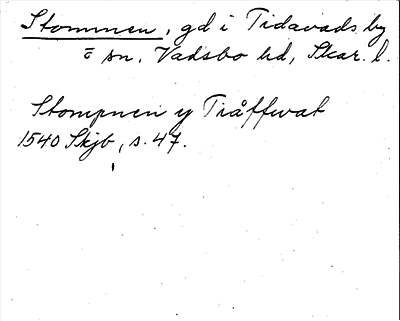 Stommen, gd i Tidavads by
o sn, Vadsbo hd, Skar. l.
Stompnen y Tråffwat
1540 Skjb, s. 47.